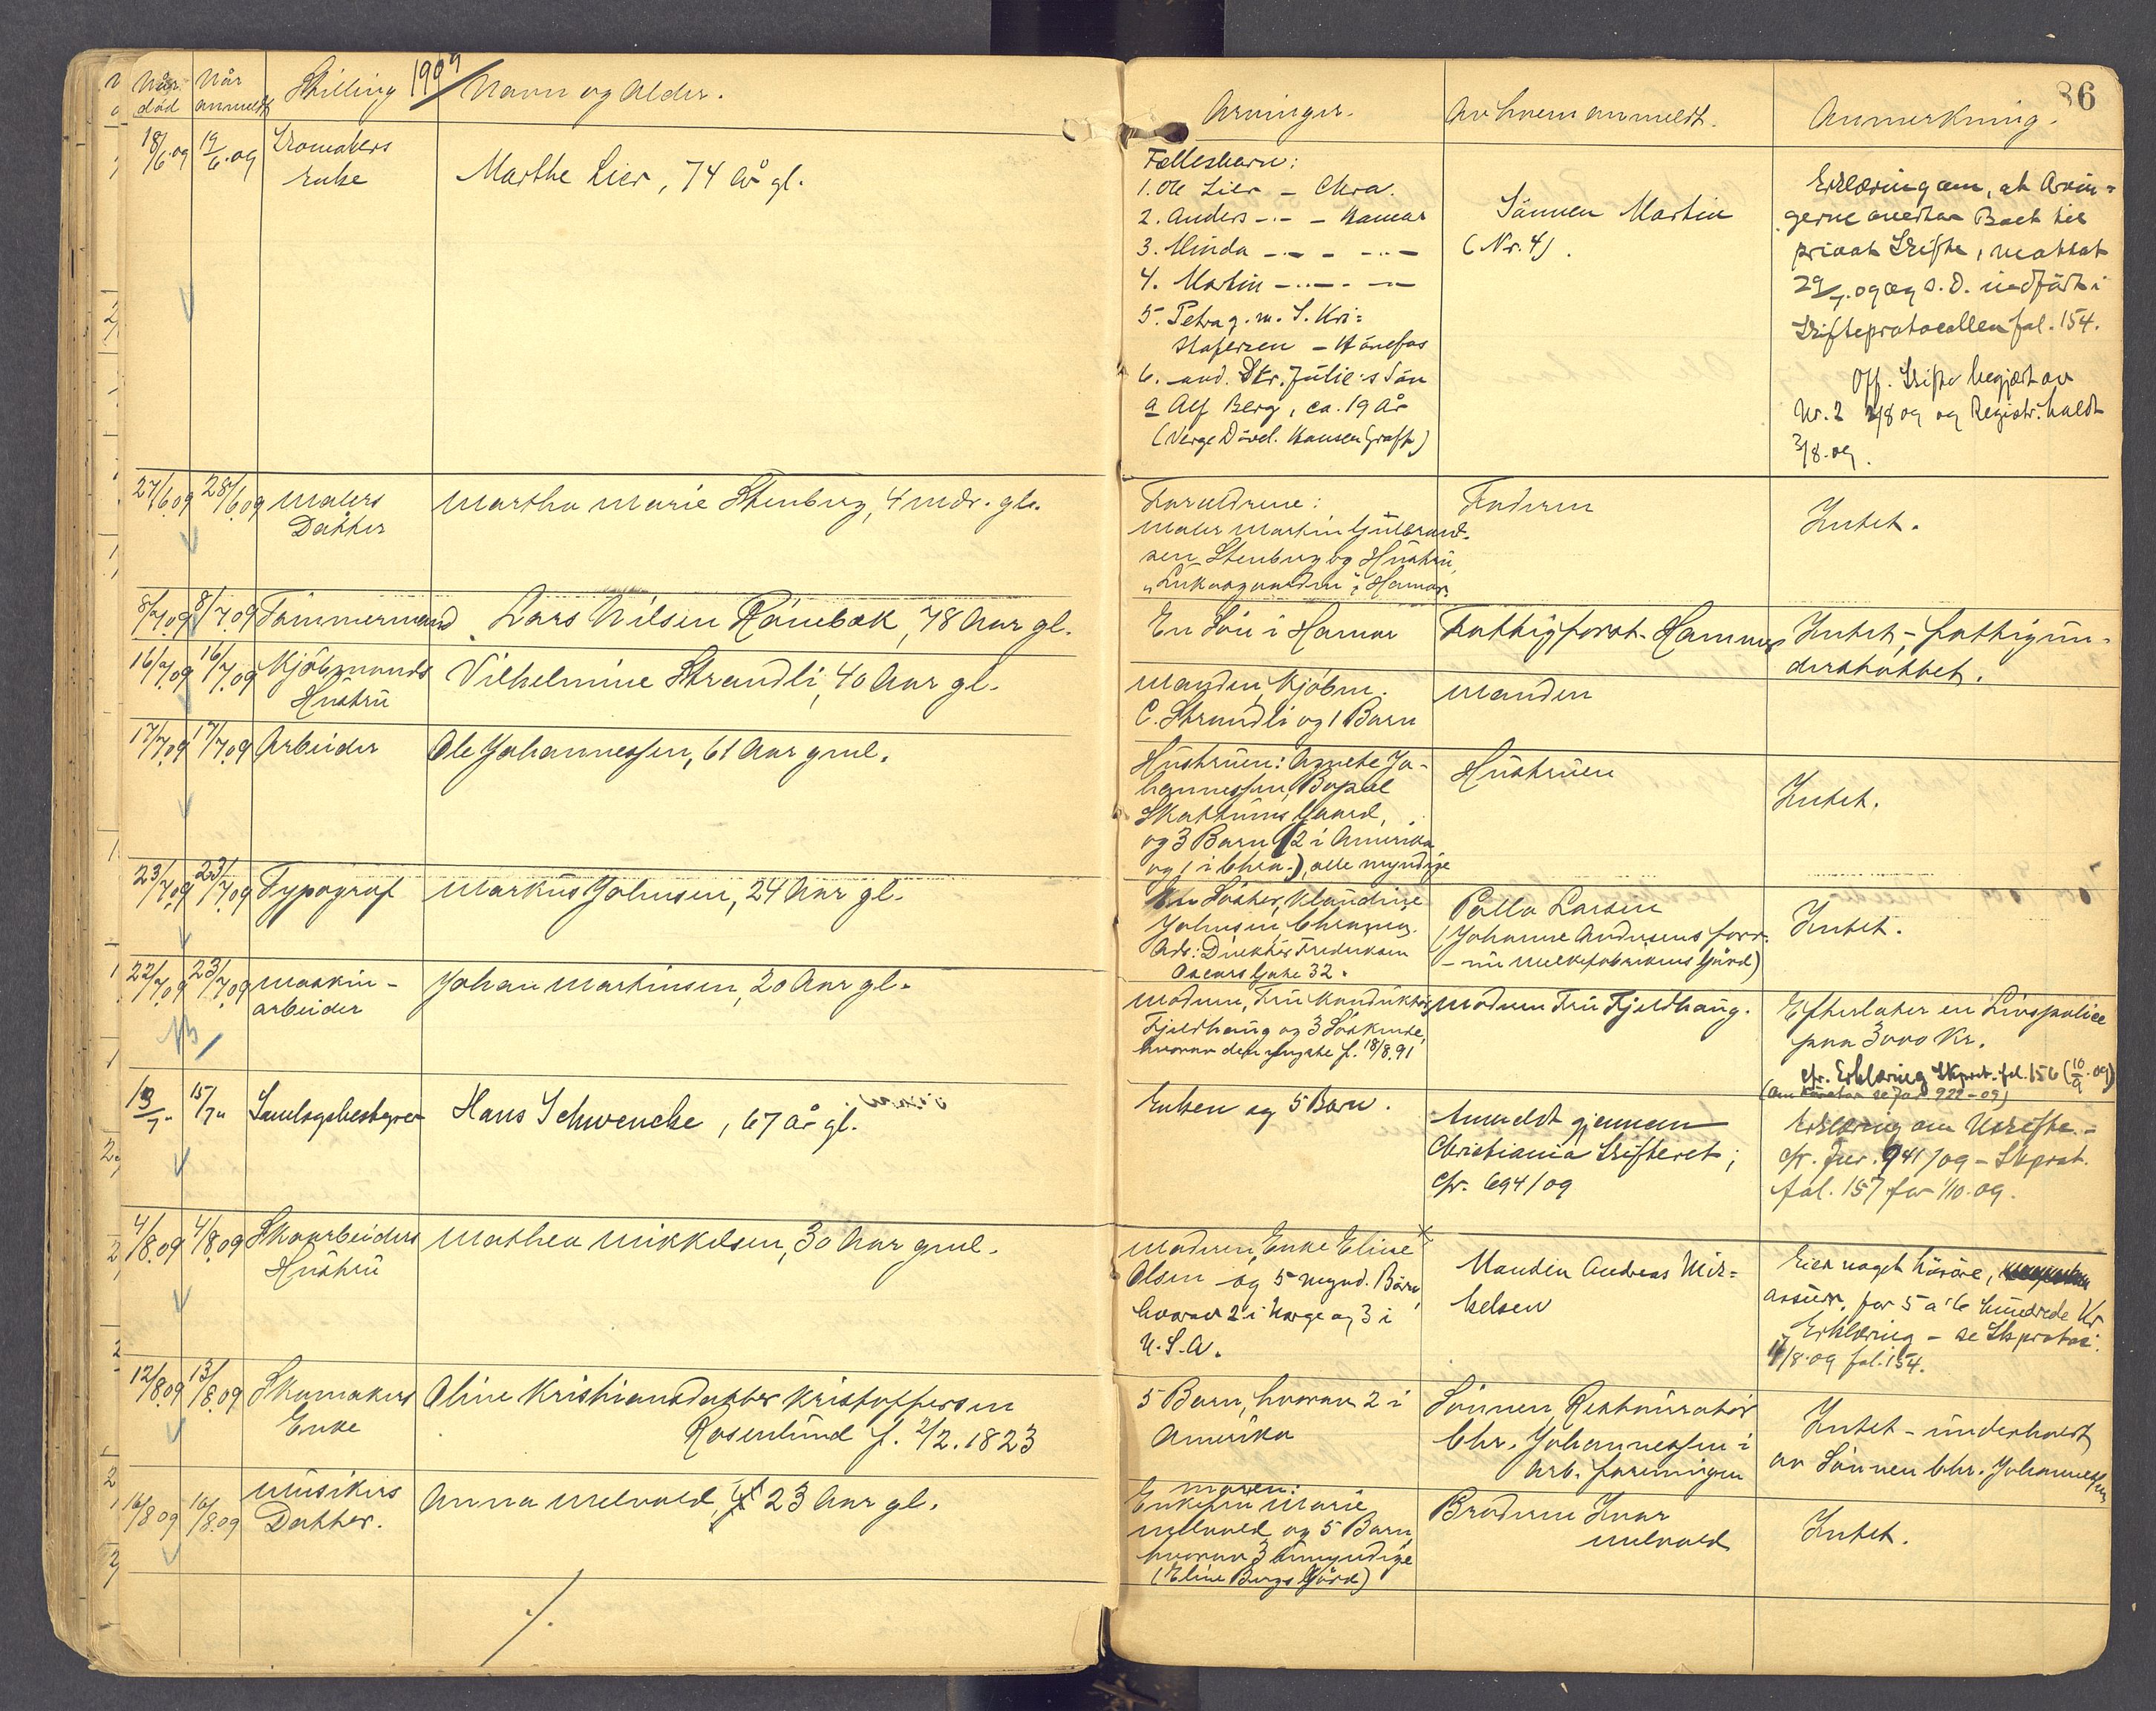 1909
Når død
Når anmeldt
Stilling
Navn og Alder.
Arvinger.
Av hvem anmeldt.
Anmerkning.
86
18/6.09
19/6.09
Skomakers
Enke
Marthe Lier, 74 år gl.
Fællesbarn:
1. Ole Lier - Chra.
2. Anders -"- - Hamar
3. Minda -"- - -"-
4. Martin -"- - -"-
5. Petra g. m. S. Kri=
stofersen - Hönefos
6. avd. Dtr. Julie's Sön
a Alf Berg, ca. 19 År
(Verge Dövel. Hansen Graff)
Sönnen Martin
(Nr. 4).
Erklæring om, at Arvin=
gerne overtar Boet til
privat Skifte, mottat
29/7.09 og s. D. indført i
Skifteprotocollen fol. 154.
Off. Skifte begjært av
Nr. 2 2/8 09 og Registr. holdt
3/8.09.
27/6.09
28/6.09
Malers
Datter
Martha Marie Stenberg, 4 mdr. gl.
Forældrene:
Maler Martin Gulbrand-
sen Stenberg og Hustru,
i Hamar.
Faderen
Intet.
8/7.09
8/7.09
Tømmermand
Lars Nilsen Rönebæk, 78 Aar gl.
En Sön i Hamar
Fattigforst. Hammer
Intet, - fattigun-
derstøttet.
16/7.09
16/7.09
Kjöbmands
Hustru
Vilhelmine Strandli, 40 Aar gl.
Manden, Kjöbm.
C. Strandli og 1 Barn
Manden
17/7.09
17/7.09
Arbeider
Ole Johannessen, 61 Aar gml.
Hustruen: Agnete Jo-
hannessen, Bopæl
Skattums Gaard,
og 3 Barn (2 i Amerika
og 1 i Chra.), alle myndige
Hustruen
Intet.
23/7.09
23/7.09
Typograf
Markus Johnsen, 24 Aar gl.
En Søster, Klaudine
Johnsen, Chrania.
Adr: Direktør Frederiksen
Oscars Gate 32.
Palla Larsen
(Johanne Andersens forr.
- nu Melkefabrikens Gård)
Intet.
22/7.09
23/7.09
Maskin-
arbeider
Johan Martinsen, 20 Aar gl.
Moderen, Fru Konduktør
Fjeldhaug og 3 Söskende,
hvorav den yngste f. 18/8.91
Moderen Fru Fjeldhaug.
Efterlater en Livspolice
paa 3000 Kr.
cfr. Erklæring Skprot. fol. 156 (10/9.09)
13/7"
15/7"
Samlagsbestyrer
Hans Schwencke, 67 år gl.
Enken og 5 Barn.
Anmeldt gjennem
Christiania Skifteret;
cfr. 694/09
Erklæring om Uskifte. -
cfr. Jur. 941/09 - Skprot.
fol. 157 for 1/10.09.
4/8.09
4/8.09
Skoarbeiders
Hustru
Mathea Mikkelsen, 30 Aar gml.
Moderen, Enke Eline
Olsen og 5 mynd. Börn,
hvorav 2 i Norge og 3 i
U.S.A.
Manden Andreas Mik=
kelsen
Eier noget lösöre,
assur. for 5 a 6 hundrede Kr
Erklæring - se Skprotoc.
11/8.09 fol. 154.
12/8.09
13/8.09
Skomakers
Enke
Oline Kristiansdatter Kristoffersen
Rosenlund f. 2/2. 1823
5 Barn, hvorav 2 i
Amerika
Sönnen, Restauratör
Chr. Johannessen i
Arb. foreningen
Intet - underholdt
av Sönnen Chr. Johannessen
16/8 09
16/8.09
Musikers
Datter.
Anna Melvold, 23 Aar gl.
Moren:
Enkefru Marie
Melvold og 5 Barn,
hvorav 3 umyndige
(Eline Bergs Gård)
Broderen Ivar
Melvold
Intet.
·/.